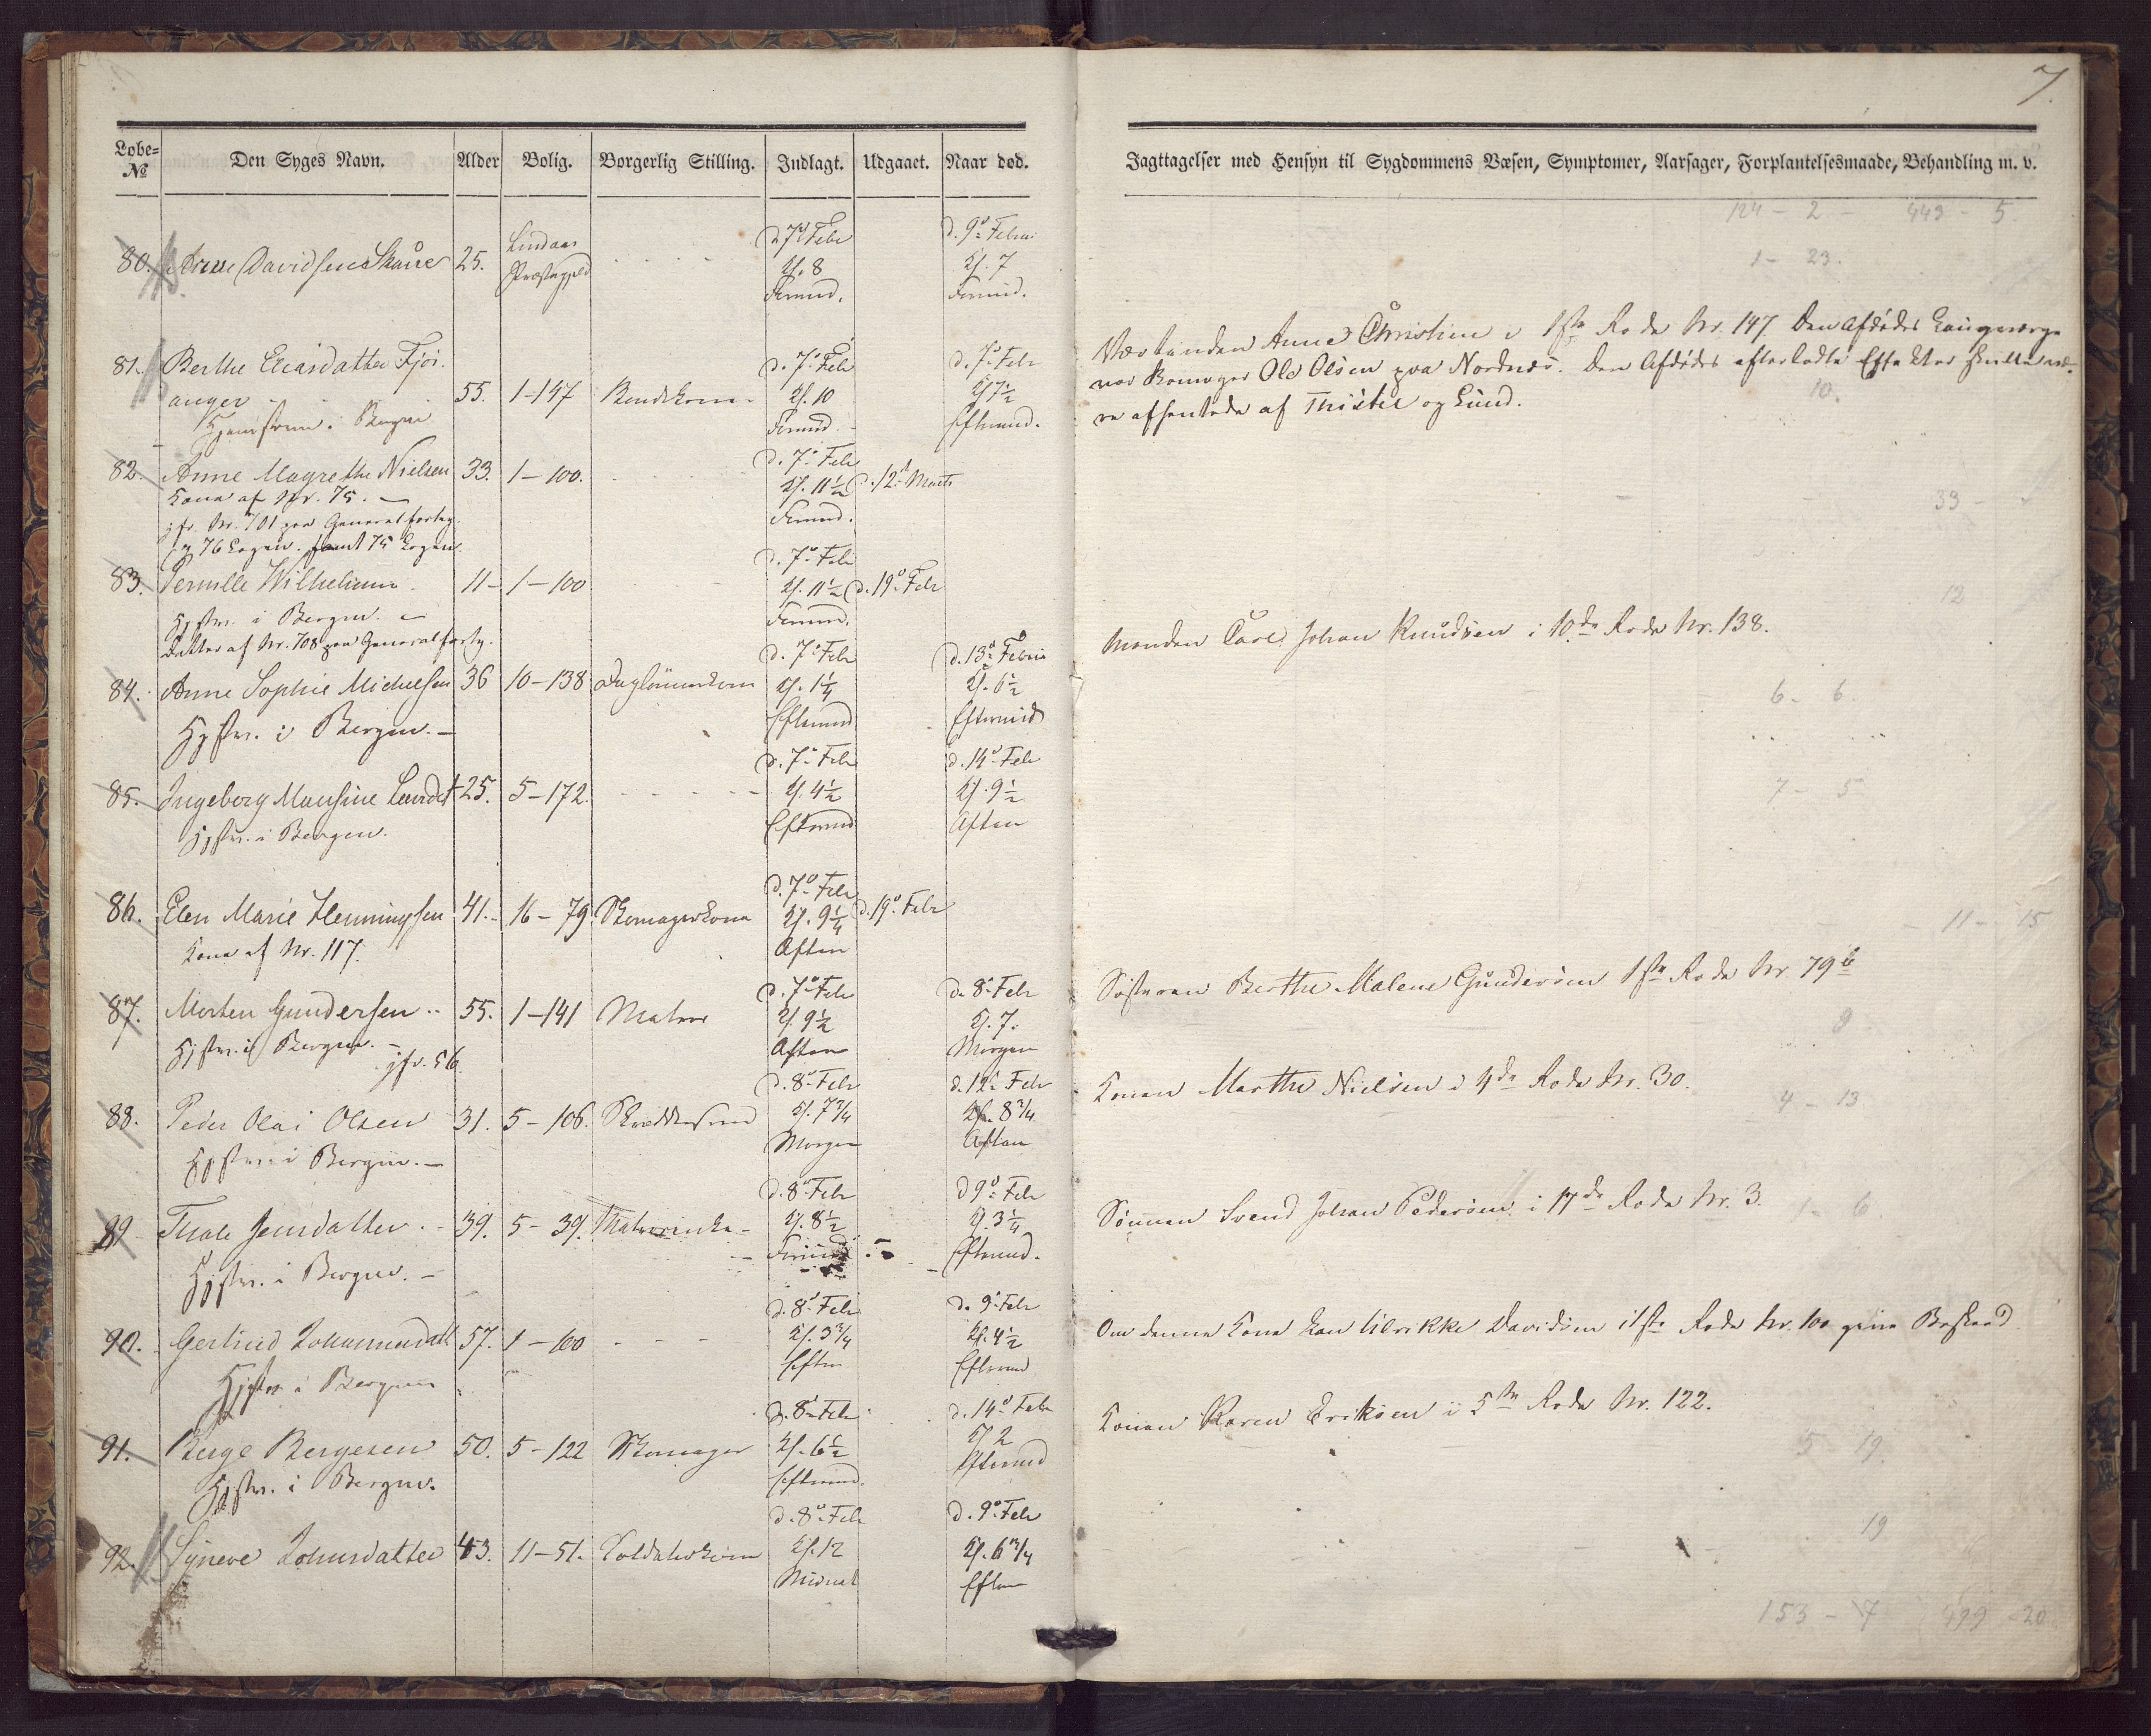 7.
Løbe= Den Syges Navn. Alder Bolig. Borgerlig Stilling. Indlagt. Udgaaet. Naar død.
№
Iagttagelser med Hensyn til Sygdommens Væsen, Symptomer, Aarsager, Forplantelsesmaade, Behandling m. v.
124 - 2 - 449 - 5
1 - 23.
Lindaas d. 7de Febr d. 9de Febru
80. Davidsen Skaare 25. Præstegjeld Kl. 8 Kl. 7
Formid. Formid.
81. Berthe Eliasdatter Fjer- d. 7de Febr d. 7de Febr
anger 55. 1-147 Kl. 10 Kl 7½
Hjemstavn i Bergen Formid Eftermid.
Anne Christine i 1ste Rode Nr. 147 Den Afdødes
Ole Olsen paa Nordnæs. Den Afdødes efterladte
re afhentede af Thistel og Lund.
10.
82. Anne Magrethe Nielsen 33. 1-100. d. 7de Febr
Kone af Nr. 75. Kl. 11½ d. 12te Marts
jfr. Nr. 701 paa Generalforteg. Formid.
39 -
83. Pernille Wilhelmine 11 - 1-100 d. 7de Febr
Hjstv. i Bergen. Kl. 11½ d. 19de Febr
Datter af Nr. 708 paa Generalforteg. Formid.
12
84. Anne Sophie Michelsen 36 10-138 d. 7de Febr d. 13de Febru
Hjstv. i Bergen. Kl. 1¼ Kl. 6½
Eftermid Eftermid
Manden Carl Johan Knudsen i 10de Rode Nr. 138.
6 - 6.
85. Ingeborg Monsine 25. 5-172. d. 7de Febr d. 14de Febr
Hjstv. i Bergen. Kl. 4½ Kl. 9½
Eftermid Aften
7 - 5
86. Elen Marie Henningsen 41. 16-79. Skomagerkone d. 7de Febr
Kone af Nr. 117. Kl. 9¼ d. 19de Febr
Aften
11 - 15
87. Morten Gundersen 55. 1-141 Matros d. 7de Febr d. 8de Febr
Hjstv. i Bergen. Kl. 9½ Kl. 7.
jfr. 56. Aften Morgen
Søsteren Berthe Malene Gundersen 1ste Rode Nr. 79 b
9
88. Peder Olai Olsen 31. 5-106. d. 8de Febr d. 12te Febr
Hjstv. i Bergen. Kl. 7¾ Kl. 8¾
Morgen Aften
Konen Marthe Nielsen i 4de Rode Nr. 30.
4 - 13
89 Thale Jensdatter 39. 5-39. d. 8de Febr d 9de Febr
Hjstv. i Bergen. Kl. 8½ Kl. 3¼
Formid Eftermid.
Sønnen Svend Johan Pedersen i 17de Rode Nr. 3.
1 - 6.
90. Gertrud Johannesdatt 57. 1-100 d. 8de Febr d. 9de Febr
Hjstv. i Bergen Kl. 3¾ Kl. 4½
Efterm Eftermid
Om denne Kone kan Ulrikke Davidsen i 1ste Rode Nr. 100 give Besked
91. Berge Bergesen 50. 5-122 Skomager d. 8de Febr d. 14de Febr
Hjstv. i Bergen. Kl. 6½ Kl 2
Eftermid. Eftermid
Konen Karen Eriksen i 5te Rode Nr. 122.
5 19.
92. Synneve Johnsdatter 43. 11-51. Soldaterkone d. 8de Febr d. 9de Febr
Kl. 12 Kl. 6¾
Midnat Efterm
19
153 - 7 499 - 20